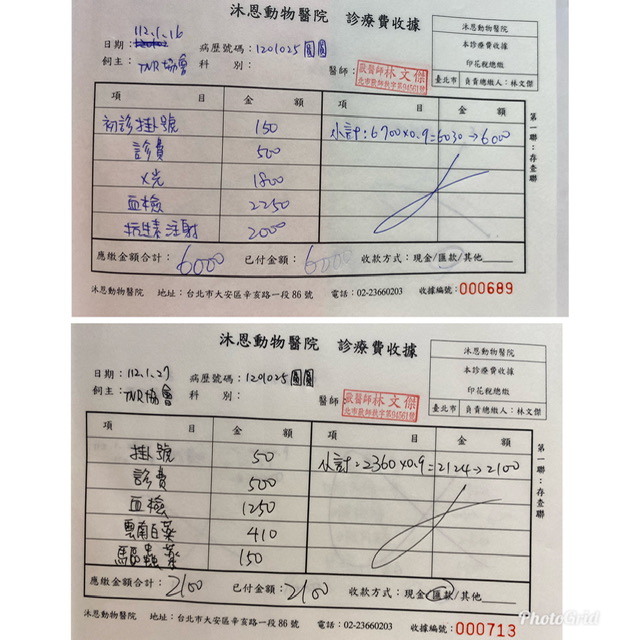 沐恩動物醫院 診療費收據
沐恩動物醫院
本診療費收據
印花稅總繳
臺北市 負責總繳人：林文傑
日期：112.1.16 病歷號碼：1201025 圓圓
飼主：TNR協會 科 別： 醫師：獸醫師林文傑
項 目 金 額 項 目 金 額
初診掛號 150 小計：6700x0.9=6030→6000
診費 500
X光 1800
血檢 2250
抗生素注射 2000
應繳金額合計：6000 已付金額：6000 收款方式：現金/匯款/其他
第一聯：存查聯
沐恩動物醫院 地址：台北市大安區辛亥路一段86號 電話：02-23660203 收據編號：000689
沐恩動物醫院 診療費收據
沐恩動物醫院
本診療費收據
印花稅總繳
臺北市 負責總繳人：林文傑
日期：112.1.27 病歷號碼：1201025圓圓
飼主：TNR協會 科 別： 醫師 獸醫師林文傑
項 目 金 額 項 目 金 額
掛號 50 小計：2360x0.9=2124→2100
診費 500
血檢 1250
雲南白藥 410
驅蟲藥 150
應繳金額合計：2100 已付金額：2100 收款方式：現金/匯款/其他
第一聯：存查聯
沐恩動物醫院 地址：台北市大安區辛亥路一段86號 電話：02-23660203 收據編號：000713
PhotoGrid